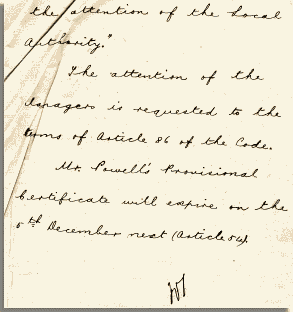 the attention of the Local
Authority."
The attention of the
Managers is requested to the
terms of Article 86 of the Code.
Mr. Powell's Provisional
Certificate will expire on the
5th December next (Article 54).